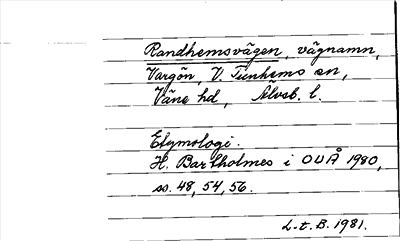 Randhemsvägen, vägnamn,
Vargön, V. Tunhems sn,
Väne hd, Älvsb. l.
Etymologi.
H. Bartholmes i OUÅ 1980,
ss. 48, 54, 56.
L-t. B. 1981.